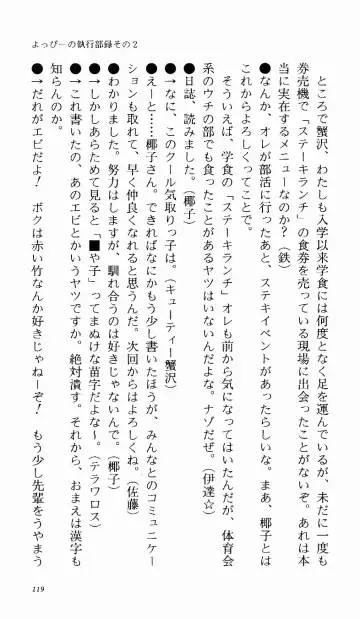 よっぴーの執行部録その2
ところで蟹沢、わたしも入学以来学食には何度となく足を運んでいるが、未だに一度も
券売機で「ステーキランチ」の食券を売っている現場に出会ったことがないぞ。あれは本
当に実在するメニューなのか?(鉄)
●なんか、オレが部活に行ったあと、ステキイベントがあったらしいな。まあ、椰子とは
これからよろしくってことで。
そういえば、学食の「ステーキランチ」オレも前から気になってはいたんだが、体育会
系のウチの部でも食ったことがあるヤツはいないんだよな。ナゾだぜ。(伊達☆)
●日誌、読みました。(椰子)
●→なに、このクール気取りっ子は。(キューティー蟹沢)
●えーと……椰子さん。できればなにかもう少し書いたほうが、みんなとのコミュニケー
ションも取れて、早く仲良くなれると思うんだ。次回からはよろしくね。(佐藤)
●わかりました。努力はしますが、馴れ合うのは好きじゃないんで。(椰子)
●→しかしあらためて見ると「■や子」ってまぬけな苗字だよな〜。(テラワロス)
●→これ書いたの、あのエビとかいうヤツですか。絶対潰す。それから、おまえは漢字も
知らんのか。
●→だれがエビだよ! ボクは赤い竹なんか好きじゃねーぞ! もう少し先輩をうやまう
119